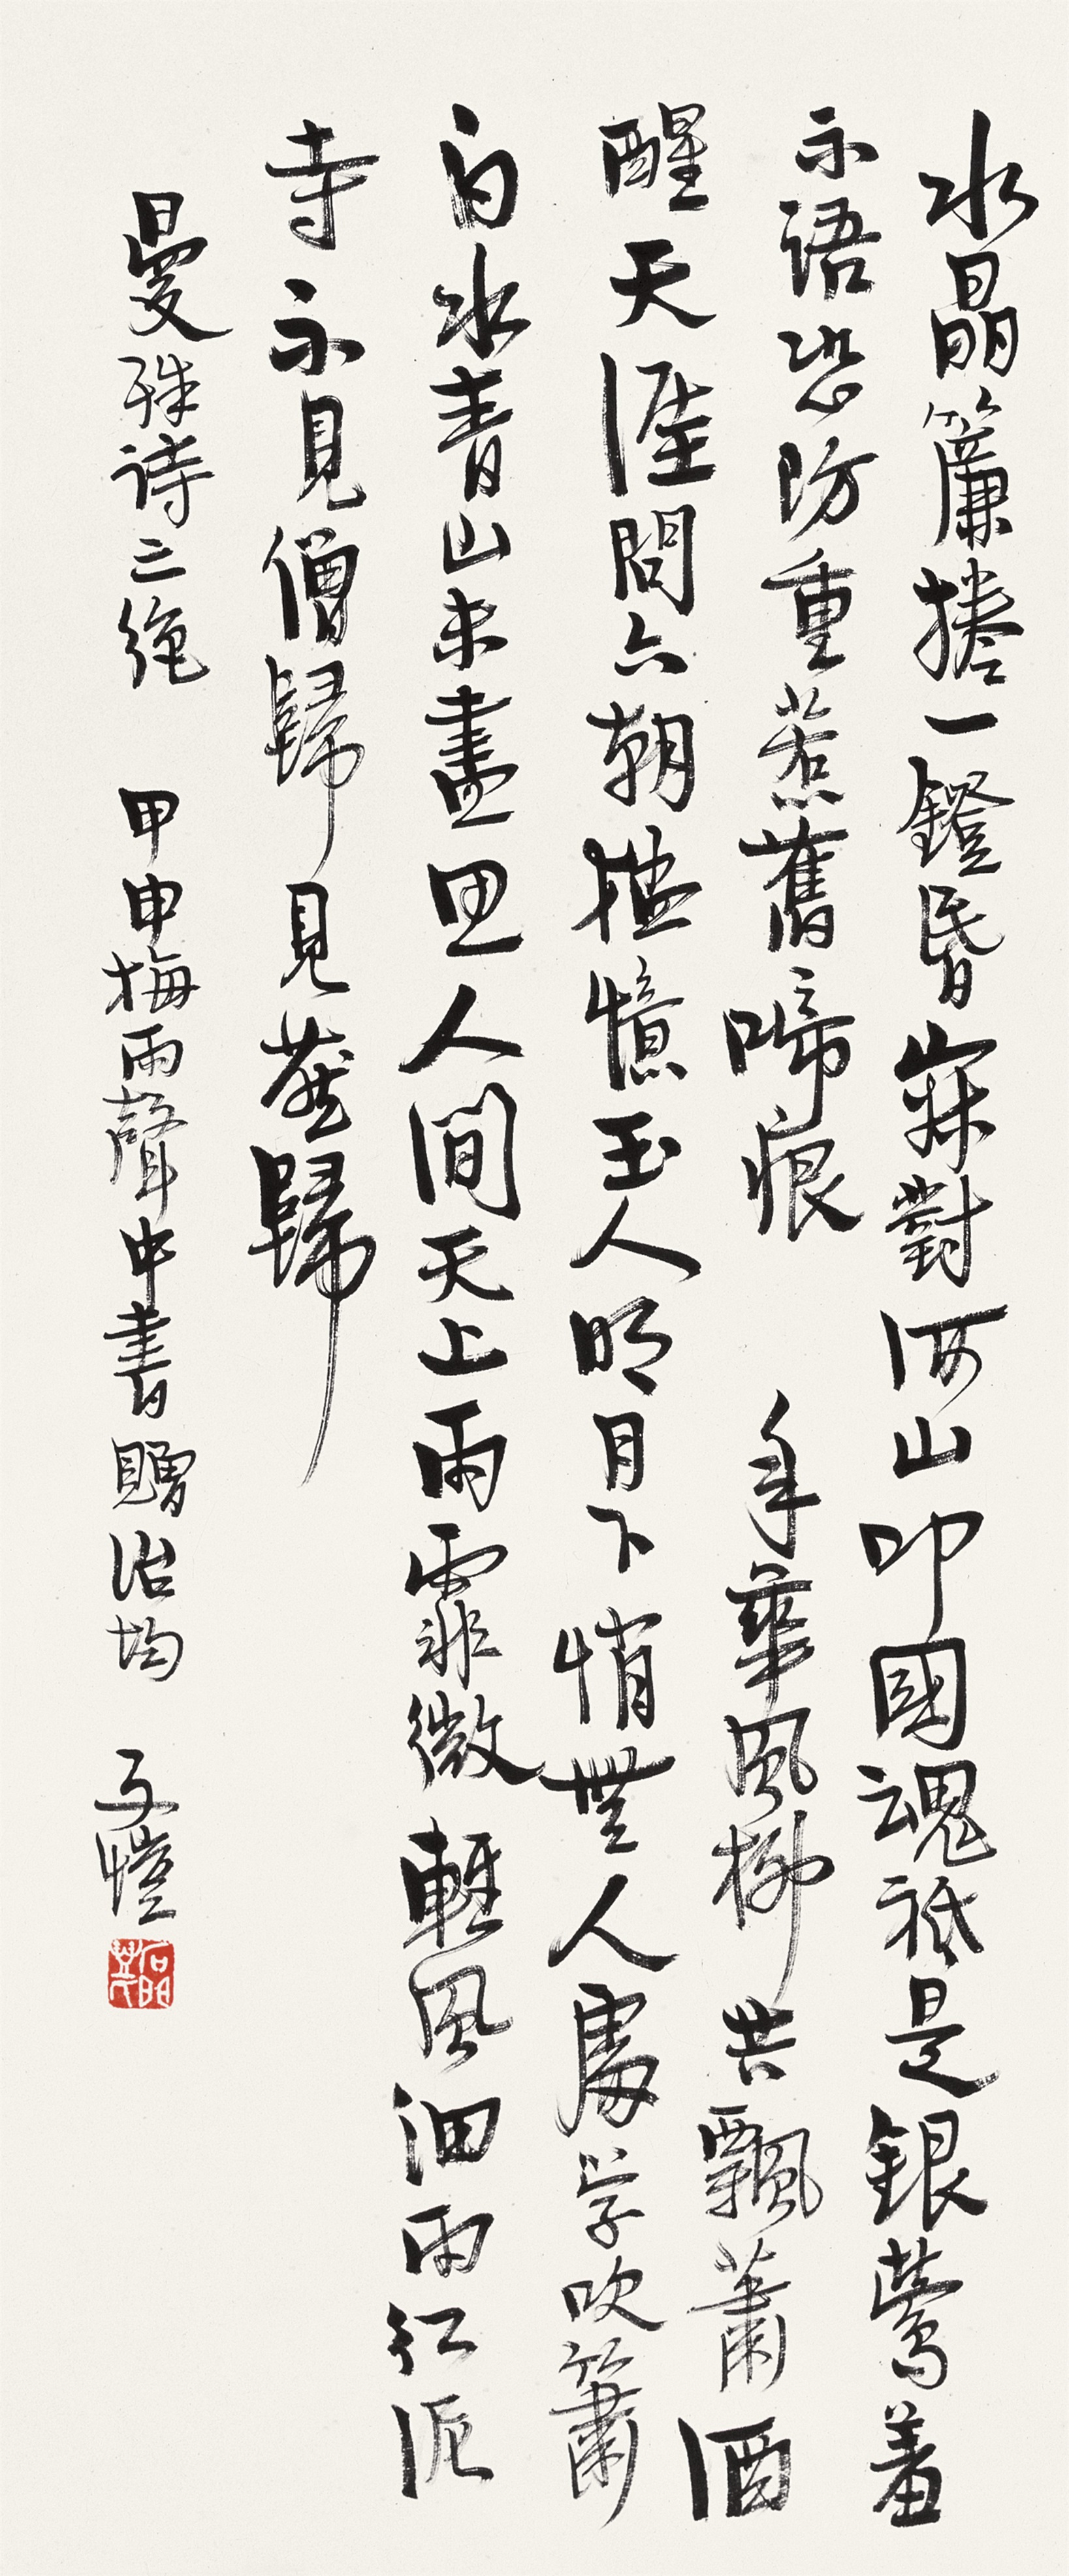 水晶簾捲一鐙昏寂對河山叩國魂祗是銀鶯羞
不語恐防重惹舊啼痕　年華風柳共飄蕭酒
醒天涯問六朝猛憶玉人明月下悄無人處学吹簫
白水青山未盡思人間天上雨霏微輕風細雨紅泥
寺不見僧歸見燕歸
曼殊诗三绝　甲申梅雨聲中書贈治均　文愷